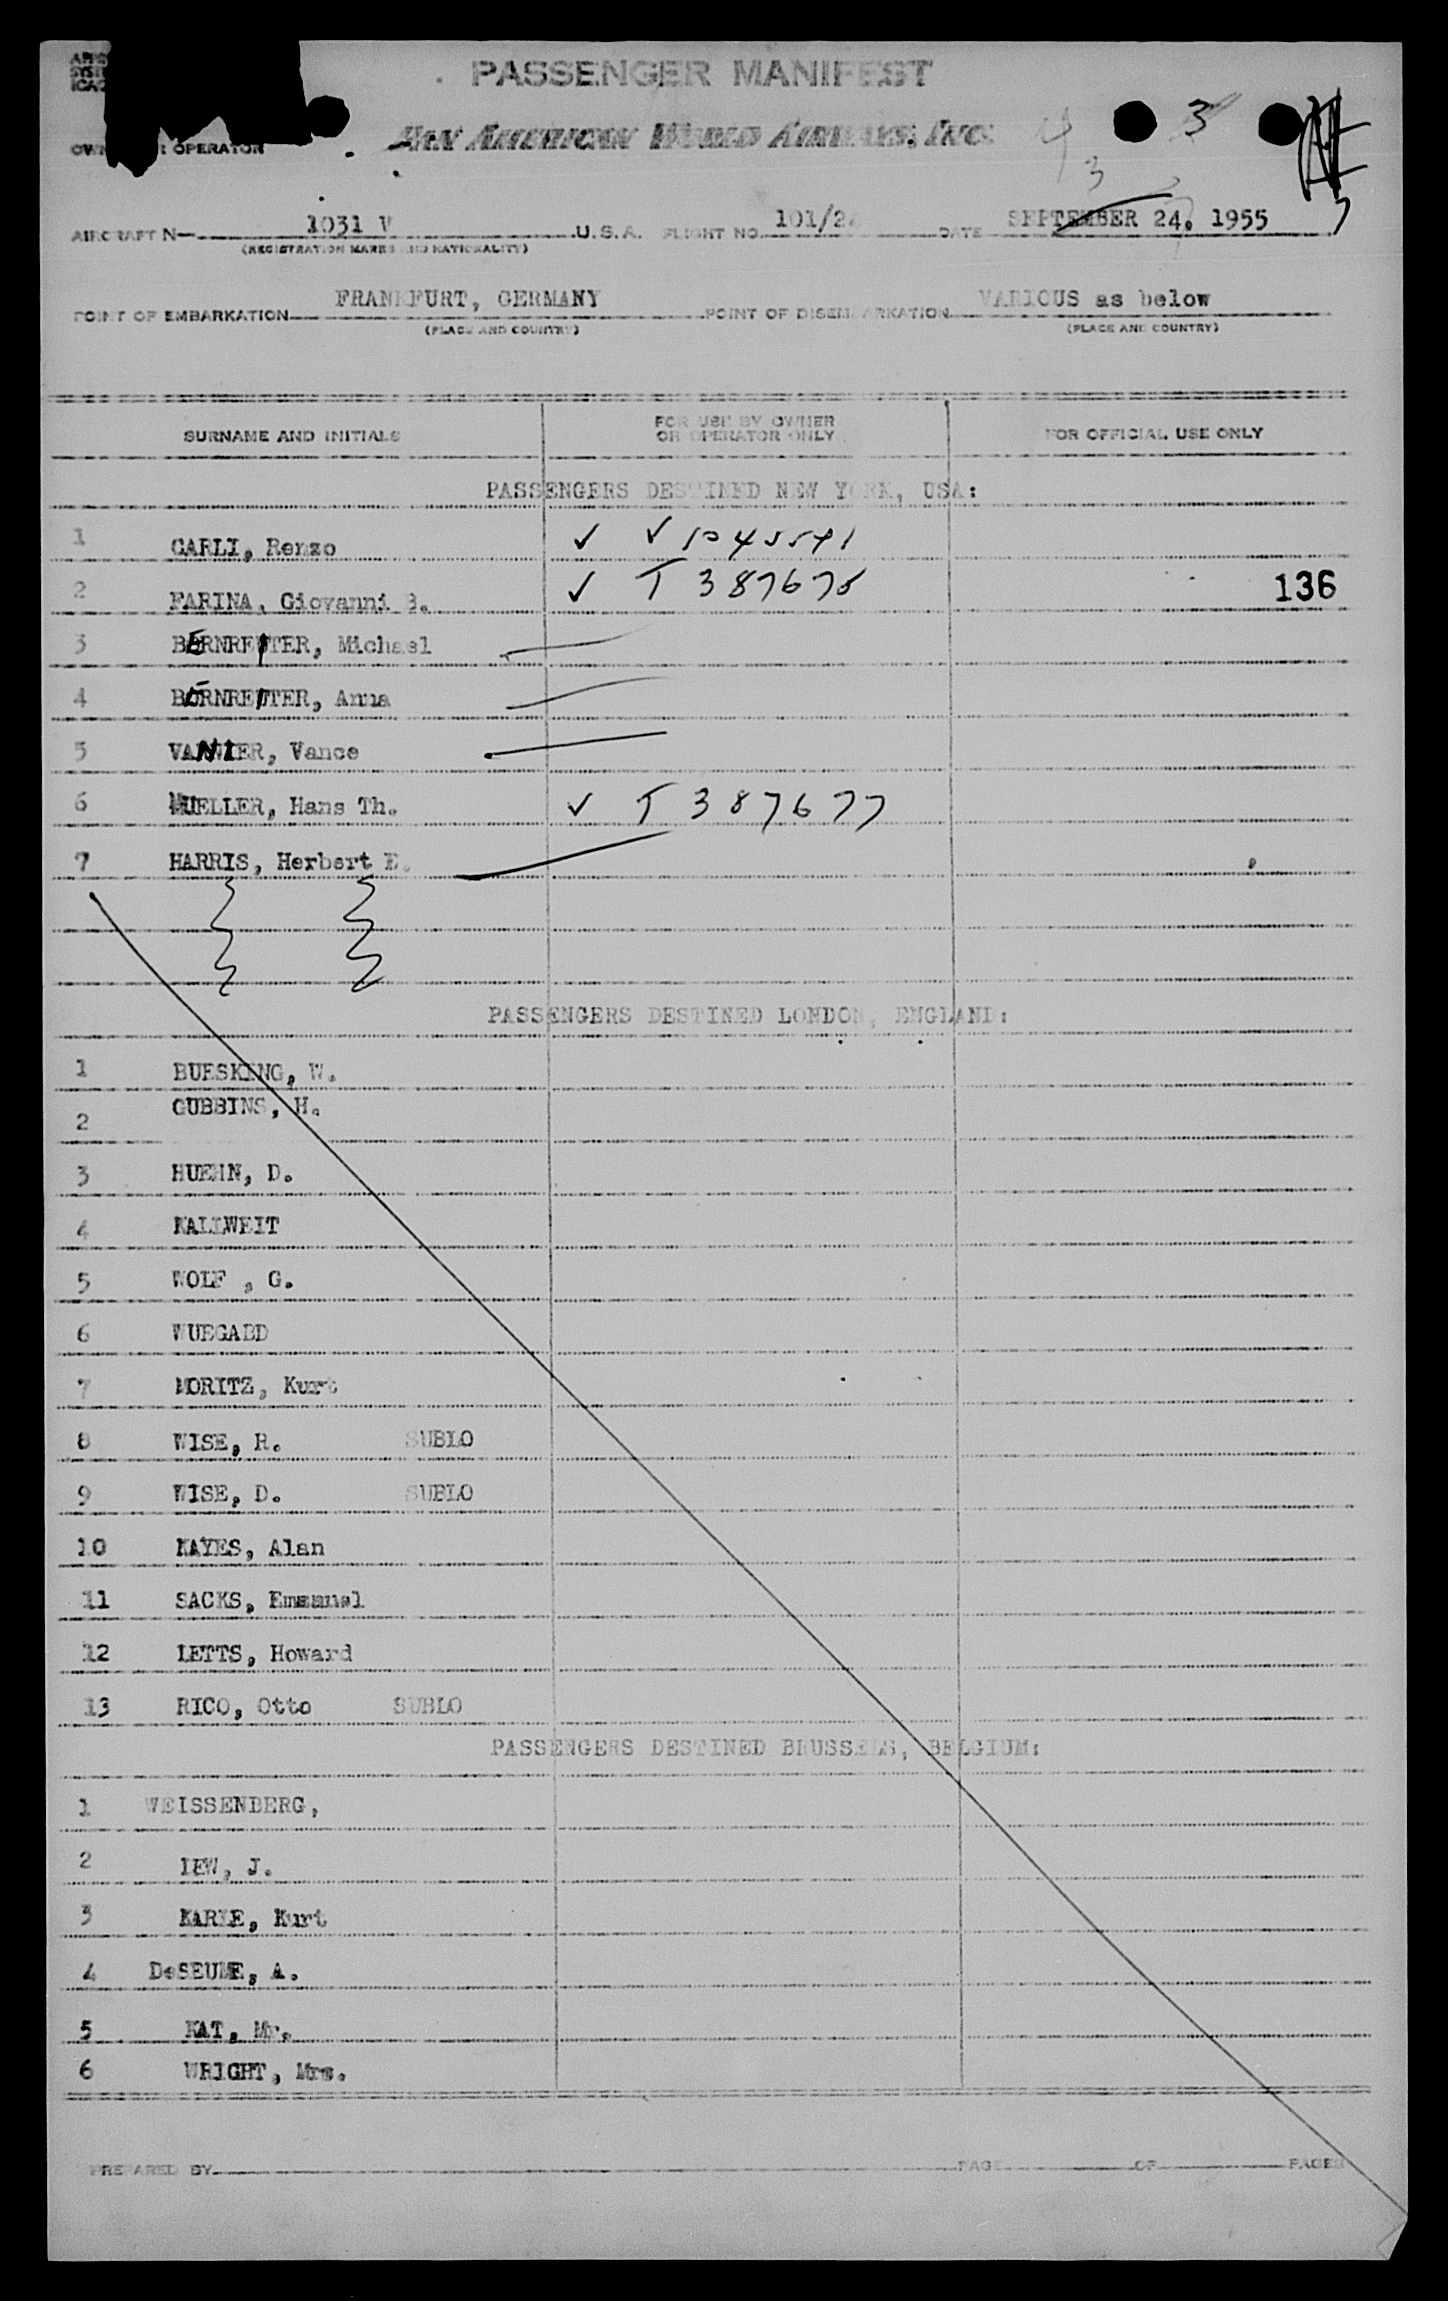 PASSENGER MANIFEST
PAN AMERICAN WORLD AIRWAYS, INC.
3
3
OPERATOR
AIRCRAFT N— 1031 V U.S.A. FLIGHT NO. 101/24 DATE SEPTEMBER 24, 1955
(REGISTRATION MARKS AND NATIONALITY)
POINT OF EMBARKATION FRANKFURT, GERMANY POINT OF DISEMBARKATION VARIOUS as below
(PLACE AND COUNTRY) (PLACE AND COUNTRY)
SURNAME AND INITIALS FOR USE BY OWNER OR OPERATOR ONLY FOR OFFICIAL USE ONLY
PASSENGERS DESTINED NEW YORK, USA:
1 CARLI, Renzo ✓ ✓
2 FARINA, Giovanni B. ✓ T 387675 136
3 BERNREITER, Michael
4 BERNREITER, Anna
5 VANNIER, Vance
6 MUELLER, Hans Th. ✓ T 387677
7 HARRIS, Herbert E.
PASSENGERS DESTINED LONDON, ENGLAND:
1 BUESKING, W.
2 GUBBINS, H.
3 HUEHN, D.
4 KALLWEIT
5 WOLF , G.
6 WUEGABD
7 MORITZ, Kurt
8 WISE, R. SUBLO
9 WISE, D. SUBLO
10 KAYES, Alan
11 SACKS, Emmanuel
12 LETTS, Howard
13 RICO, Otto SUBLO
PASSENGERS DESTINED BRUSSELS, BELGIUM:
1 WEISSENBERG,
2 LEW, J.
3 KARLE, Kurt
4 DeSEUME, A.
5 KAT, Mr.
6 WRIGHT, Mrs.
PREPARED BY PAGE OF PAGES